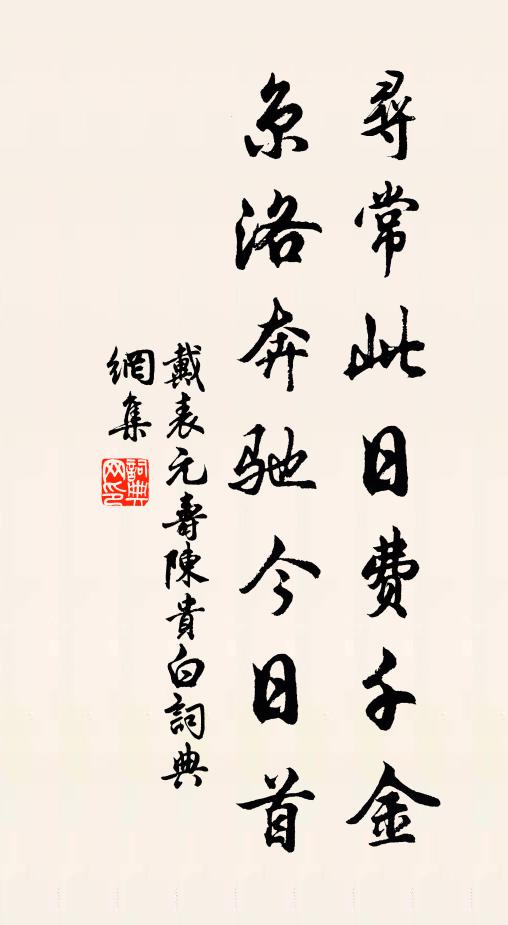 尋常此日費千金
京洛奔馳今日首
戴表元壽陳貴白詞典
網集
詞典
网印